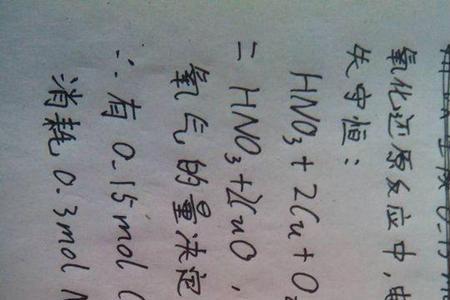 氧化还原反应中,电
失守恒:
HNO₃+2Cu+O
=HNO₃+2CuO,
氧气的量决定
∴有0.15mol
消耗0.3mol